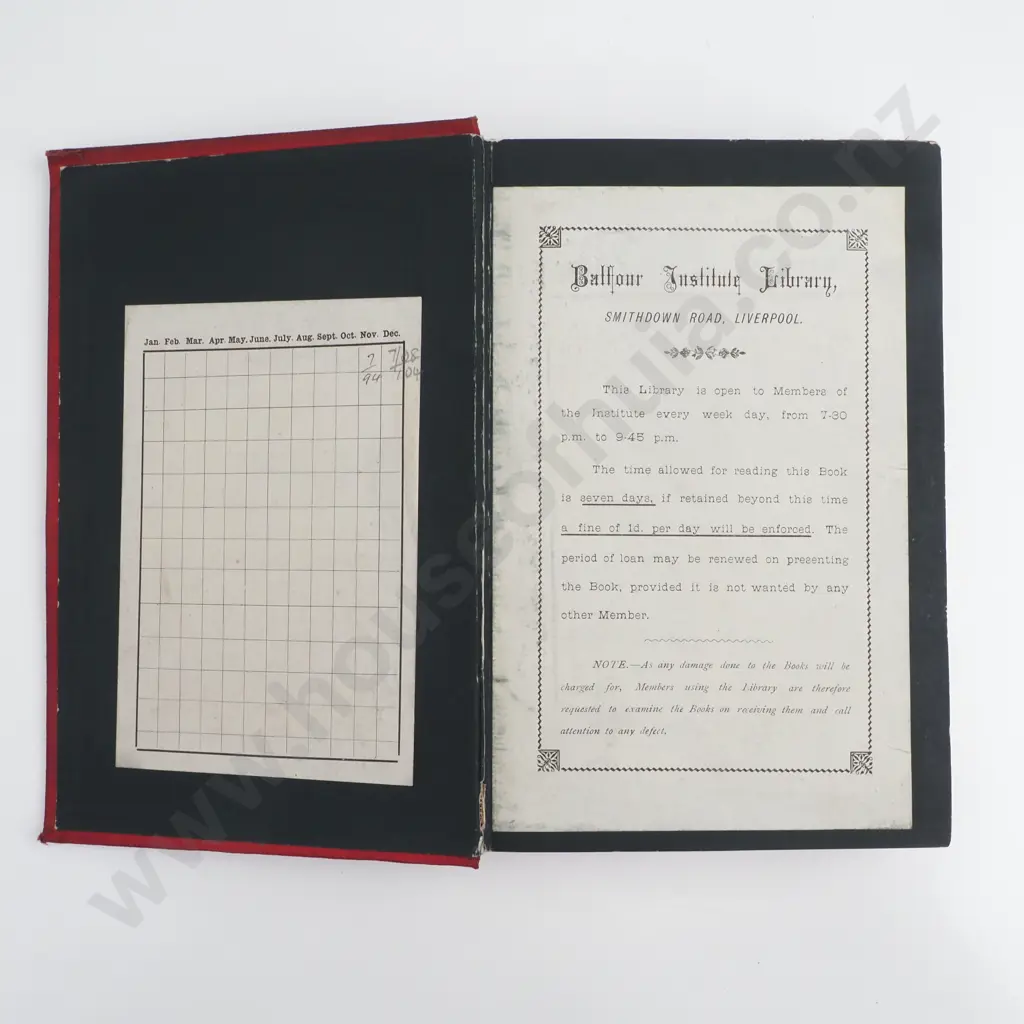 Jan. Feb. Mar. Apr. May. June. July. Aug. Sept. Oct. Nov. Dec.
7/94
Balfour Institute Library,
SMITHDOWN ROAD, LIVERPOOL.
This Library is open to Members of
the Institute every week day, from 7-30
p.m. to 9-45 p.m.
The time allowed for reading this Book
is seven days, if retained beyond this time
a fine of 1d. per day will be enforced. The
period of loan may be renewed on presenting
the Book, provided it is not wanted by any
other Member.
NOTE.—As any damage done to the Books will be
charged for, Members using the Library are therefore
requested to examine the Books on receiving them and call
attention to any defect.
www.houseofhuia.co.nz